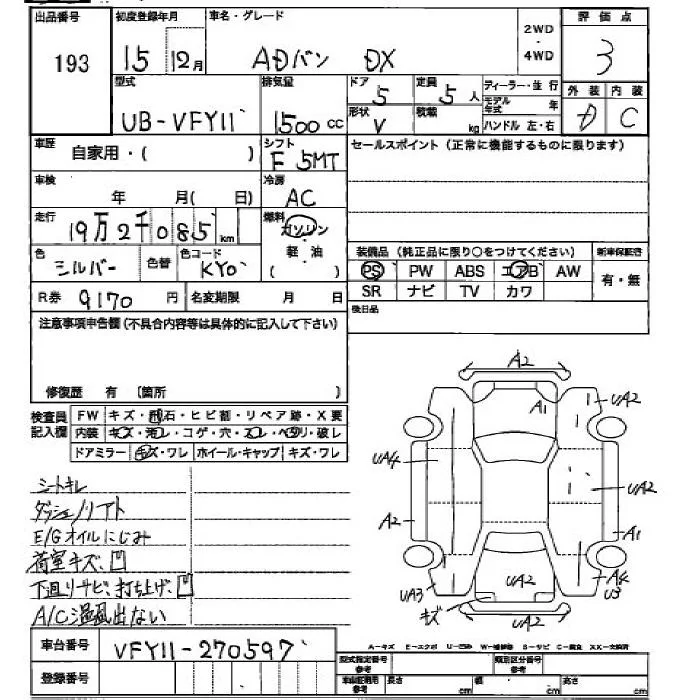 出品番号 初度登録年月 車名・グレード 2WD・4WD 評価点
193 15 12月 ADバン DX 3
型式 排気量 ドア 定員 ディーラー・並行 外装 内装
UB-VFY11 1500cc 5 5人 モデル年式 年 D C
形状 積載 V kg ハンドル 左・右
車歴 自家用・( ) シフト F 5MT セールスポイント(正常に機能するものに限ります)
車検 年 月( 日) 冷房 AC
走行 19万2千085km 燃料 ガソリン・軽油・( )
色 シルバー 色替 色コード KY0
装備品(純正品に限り○をつけてください) 新車保証書
PS PW ABS エアB AW 有・無
SR ナビ TV カワ
R券 9170円 名変期限 月 日
後日品
注意事項申告欄(不具合内容等は具体的に記入して下さい)
修復歴 有 〔箇所 〕
検査員記入欄 FW キズ・飛石・ヒビ割・リペア跡・X要
内装 キズ・汚レ・コゲ・穴・スレ・ヘタリ・破レ
ドアミラー キズ・ワレ ホイール・キャップ キズ・ワレ
A2
A1 UA2
UA4 UA2
A2 A1
UA3 キズ UA2 A4 U3
UA2
シートキレ
ダッシュノリアト
E/Gオイルにじみ
荷室キズ、凹
下廻りサビ、打ち上げ、凹
A/C温風出ない
車台番号 VFY11-270597
A-キズ E-エクボ U-凹ミ W-補修跡 B-サビ C-腐食 XX-交換済
登録番号
型式指定番号 参考 類別区分番号 参考
車庫証明用 参考 長さ cm 幅 cm 高さ cm